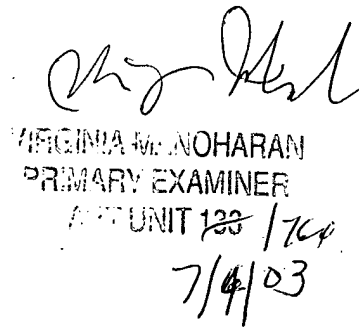 VIRGINIA MANOHARAN
PRIMARY EXAMINER
ART UNIT 133 / 764
7/4/03